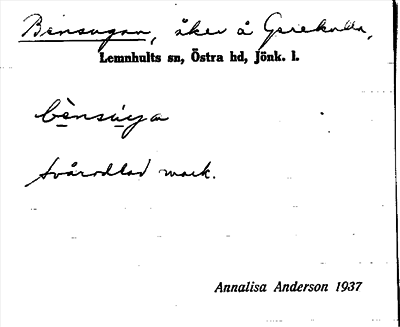 Bensugan, åker å Geriekulla,
Lemnhults sn, Östra hd, Jönk. l.
bènsùga
svårodlad mark.
Annalisa Anderson 1937